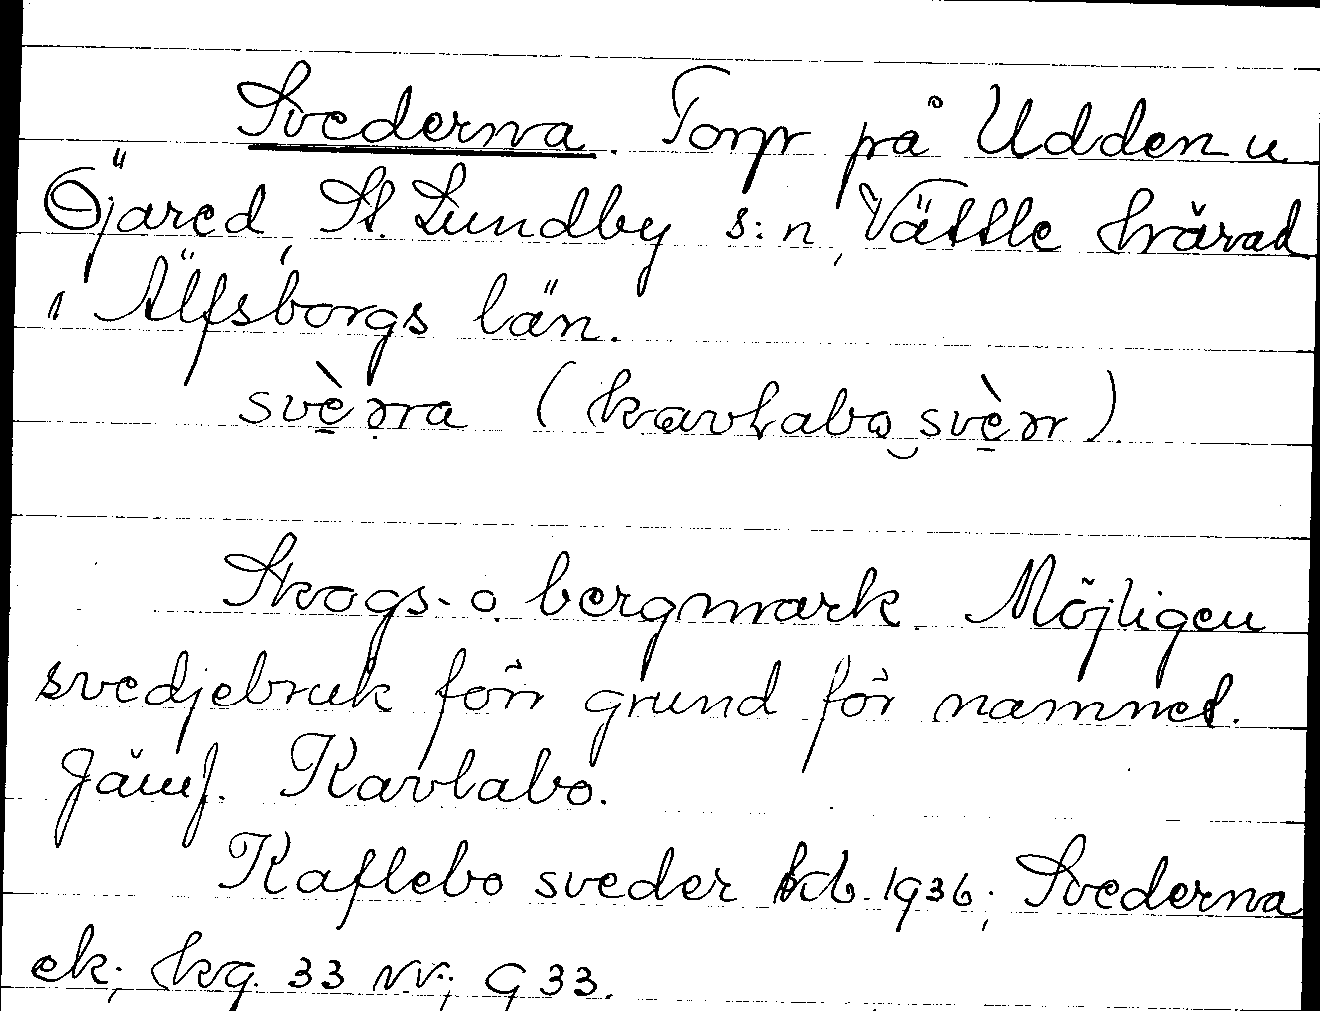 Svederna. Torp på Udden u
Öjared, St. Lundby s:n, Vättle härad
i Älfsborgs län.
svèrra (kavlabo svèrr).
Skogs- o. bergmark. Möjligen
svedjebruk förr grund för namnet.
Jämf. Kavlabo.
Kaflebo sveder kb. 1936; Svederna
ek; kg. 33 NV; G 33.